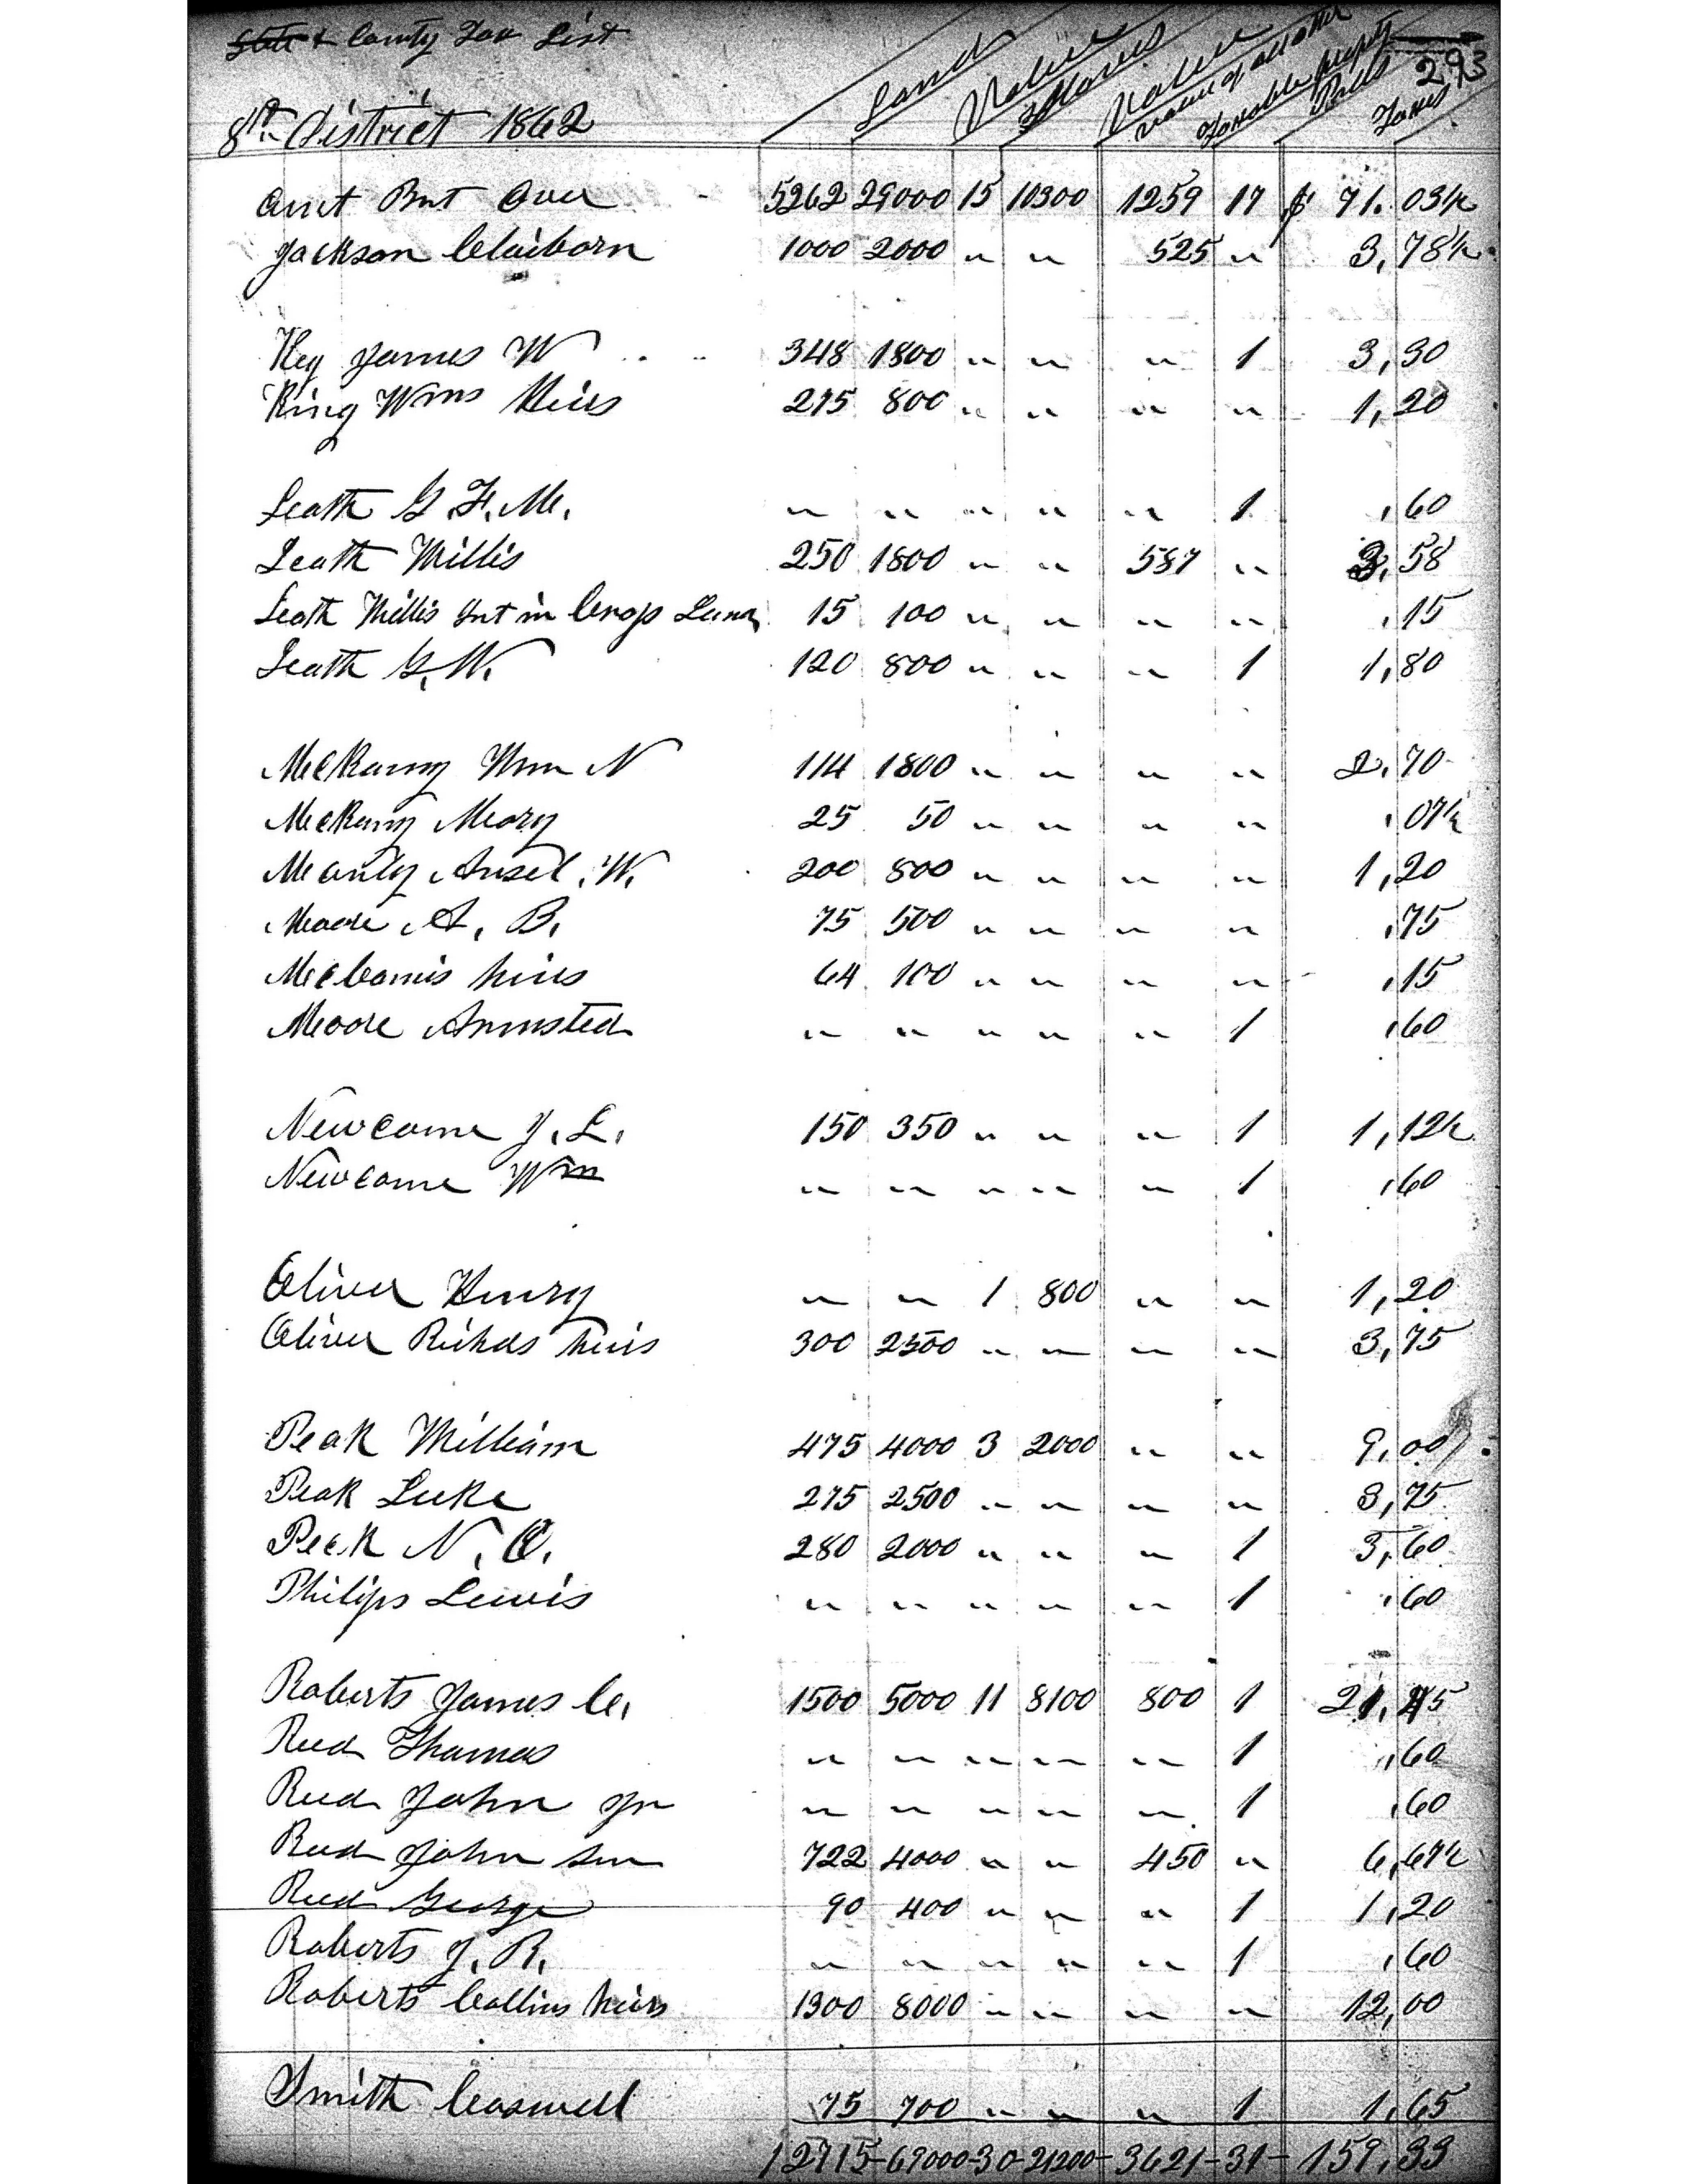 State & County Tax List
293
Land Value Slaves Value Value of all other Taxable property Polls Taxes
8th District 1862
Amt Brt Over 5262 29000 15 10300 1259 17 $ 71.03½
Jackson Claiborn 1000 2000 " " 525 " 3,78½
Key James W 348 1800 " " " 1 3,30
King Wms Heirs 275 800 " " " " 1,20
Leath G. F. M. " " " " " 1 ,60
Leath Willis 250 1800 " " 587 " 3,58
Leath Willis Int in Crops 15 100 " " " " ,15
Leath G. W. 120 800 " " " 1 1,80
McKamy Wm N 114 1800 " " " " 2,70
McKamy Mary 25 50 " " " " ,07½
Manly Ansel W. 200 800 " " " " 1,20
Moore A. B. 75 500 " " " " ,75
heirs 64 100 " " " " ,15
Moore Armsted " " " " " 1 ,60
Newcome J. L. 150 350 " " " 1 1,12½
Newcome Wm " " " " " 1 ,60
Oliver Henry " " 1 800 " " 1,20
Oliver Richds heirs 300 2500 " " " " 3,75
Peak William 475 4000 3 2000 " " 9,00
Peak Luke 275 2500 " " " " 3,75
Peek N. O. 280 2000 " " " 1 3,60
Philips Lewis " " " " " 1 ,60
Roberts James C. 1500 5000 11 8100 800 1 21,45
Reed Thomas " " " " " 1 ,60
Reed John Jr " " " " " 1 ,60
Reed John Sen 722 4000 " " 450 " 6,67½
Reed George 90 400 " " " 1 1,20
Roberts J. R. " " " " " 1 ,60
Roberts Collins heirs 1300 8000 " " " " 12,00
Smith Caswell 75 700 " " " 1 1,65
12715-69000-30-21200-3621-31-159,33